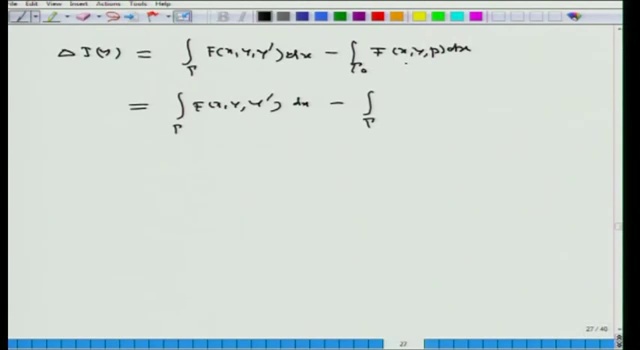 File Edit View Insert Actions Tools Help
Δ J(Y) = ∫_Γ F(x, Y, Y') dx − ∫_Γ₀ F(x, Y, p) dx
= ∫_Γ F(x, Y, Y') dx − ∫_Γ
27 / 40
27